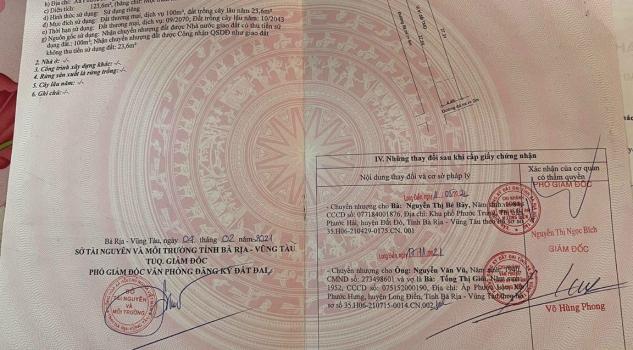 c) Diện tích: 123,6m²
d) Hình thức sử dụng: Sử dụng riêng
đ) Mục đích sử dụng: Đất thương mại, dịch vụ 100m², đất trồng cây lâu năm 23,6m²
e) Thời hạn sử dụng: Đất thương mại, dịch vụ: 09/2070; Đất trồng cây lâu năm: 10/2043
g) Nguồn gốc sử dụng: Nhận chuyển nhượng đất được Nhà nước giao đất có thu tiền sử
dụng đất: 100m²; Nhận chuyển nhượng đất được Công nhận QSDĐ như giao đất
không thu tiền sử dụng đất: 23,6m²
2. Nhà ở: -/-
3. Công trình xây dựng khác: -/-
4. Rừng sản xuất là rừng trồng: -/-
5. Cây lâu năm: -/-
6. Ghi chú: -/-
Bà Rịa - Vũng Tàu, ngày 04 tháng 02 năm 2021
SỞ TÀI NGUYÊN VÀ MÔI TRƯỜNG TỈNH BÀ RỊA - VŨNG TÀU
TUQ. GIÁM ĐỐC
PHÓ GIÁM ĐỐC VĂN PHÒNG ĐĂNG KÝ ĐẤT ĐAI
SỞ
TÀI NGUYÊN
VÀ
MÔI TRƯỜNG
IV. Những thay đổi sau khi cấp giấy chứng nhận
Nội dung thay đổi và cơ sở pháp lý
Xác nhận của cơ quan
có thẩm quyền
PHÓ GIÁM ĐỐC
Long Điền, ngày
- Chuyển nhượng cho Bà: Nguyễn Thị Bé Bảy, Năm sinh
CCCD số: 077184001876, Địa chỉ: Khu phố Phước Trung, Thị
Phước Hải, huyện Đất Đỏ, Tỉnh Bà Rịa - Vũng Tàu theo
35.H06-210429-0175.CN. 001
Nguyễn Thị Ngọc Bích
GIÁM ĐỐC
Long Điền, ngày
- Chuyển nhượng cho Ông: Nguyễn Văn Vũ, Năm sinh: 1940,
CMND số: 273498601 và vợ là Bà: Tống Thị Giỏi, Năm sinh
1952, CCCD số: 075152000190, Địa chỉ: Ấp Phước Lâm, Xã
Phước Hưng, huyện Long Điền, Tỉnh Bà Rịa - Vũng Tàu theo hồ
sơ số 35.H06-210715-0014.CN.002
Võ Hùng Phong